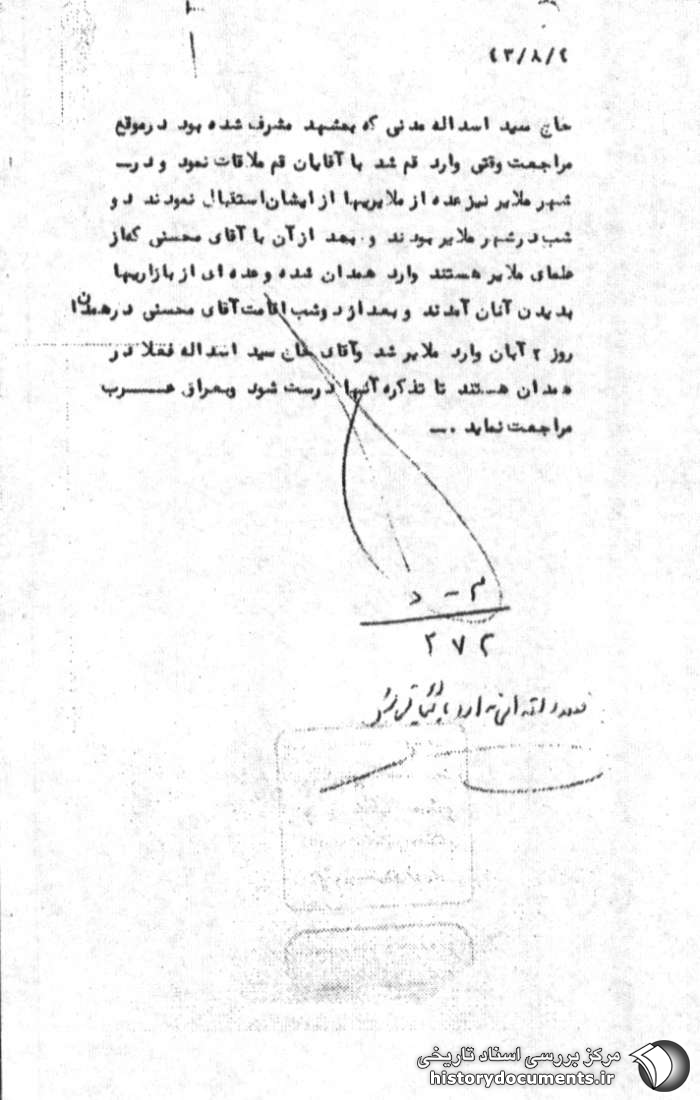 ۴۳/۸/۴
حاج سید اسداله مدنی که بمشهد مشرف شده بود درموقع
مراجعت وقتی وارد قم شد با آقایان قم ملاقات نمود و در
شهر ملایر نیز عده از ملایریها از ایشان استقبال نمودند دو
شب در شهر ملایر بودند و بعد از آن با آقای محسنی که از
علمای ملایر هستند وارد همدان شده و عده ای از بازاریها
بدیدن آنان آمدند و بعد از دو شب اقامت آقای محسنی در همدان
روز ۲ آبان وارد ملایر شد وآقای حاج سید اسداله فعلا در
همدان هستند تا تذکره آنها درست شود وبعراق عرب
مراجعت نماید ...
م - د
۲۷۲
مرکز بررسی اسناد تاریخی
historydocuments.ir